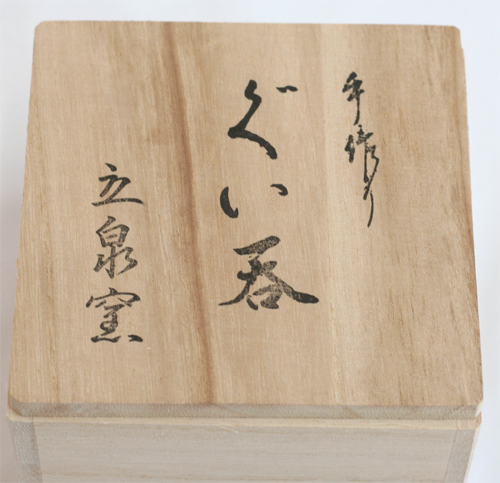 手作り
ぐい呑
立泉窯